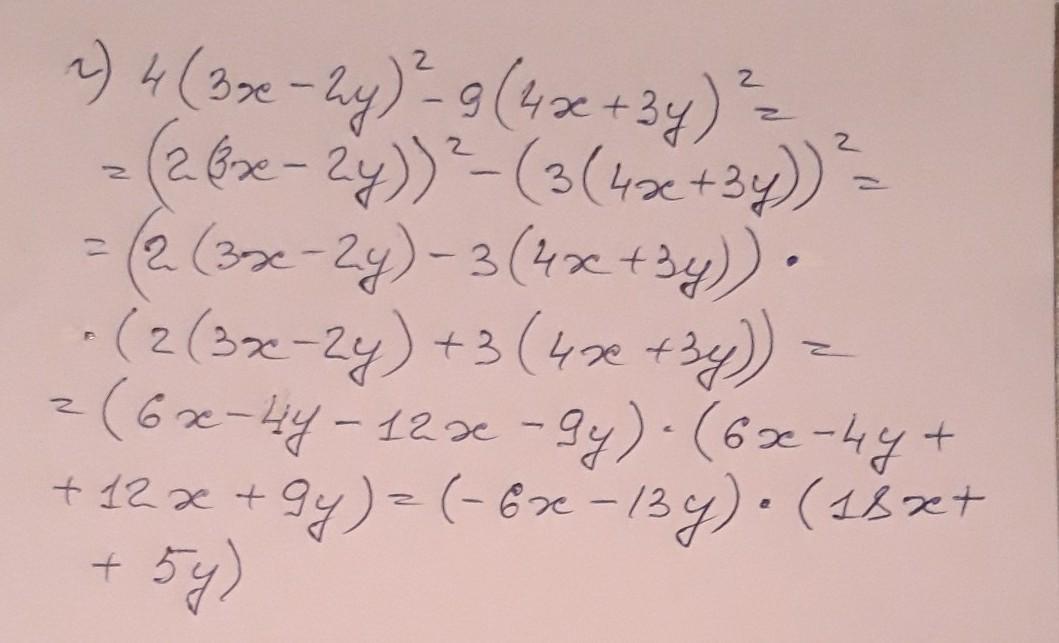 г) 4(3x-2y)²-9(4x+3y)²=
=(2(3x-2y))²-(3(4x+3y))²=
=(2(3x-2y)-3(4x+3y))·
·(2(3x-2y)+3(4x+3y))=
=(6x-4y-12x-9y)·(6x-4y+
+12x+9y)=(-6x-13y)·(18x+
+5y)